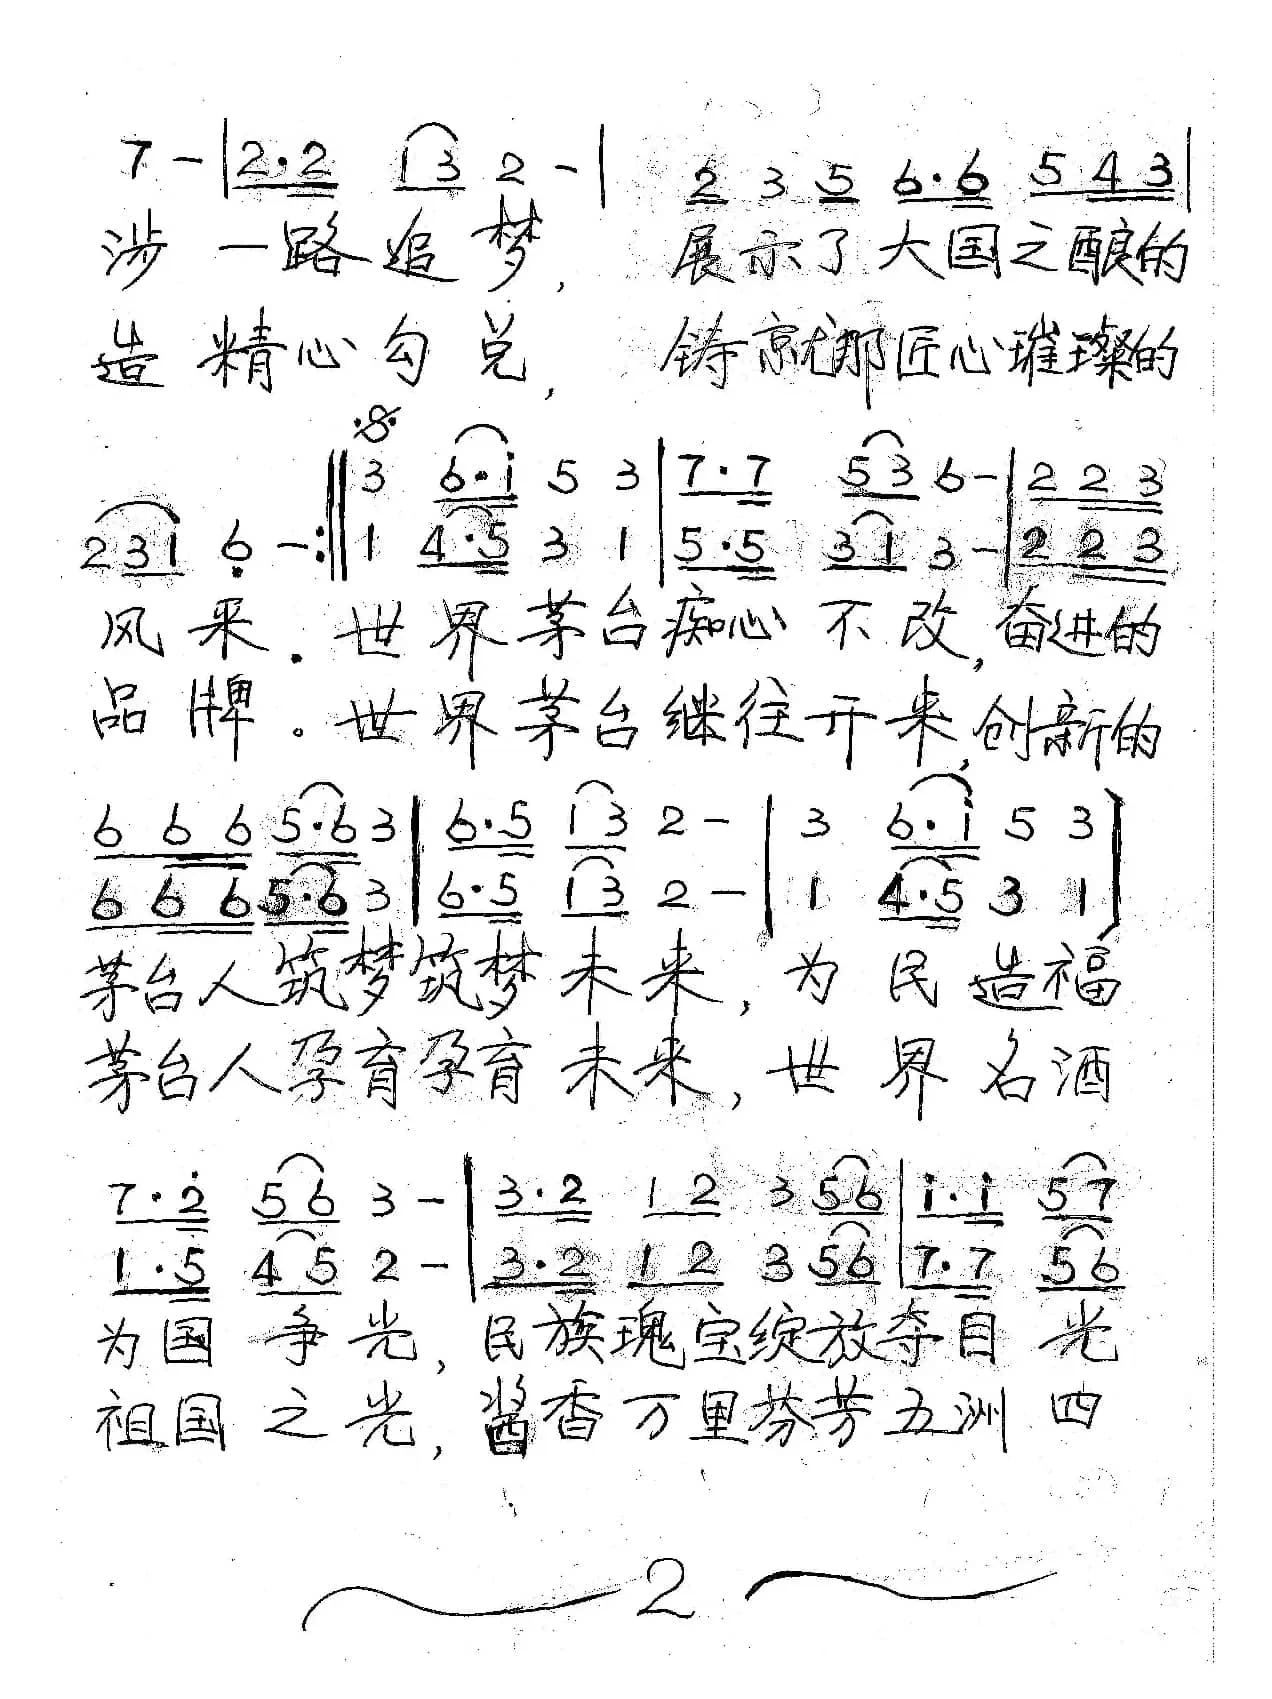 7 - | 2·2 1 3 2 - | 2 3 5 6·6 5 4 3 |
涉一路追梦, 展示了大国之酿的
造精心勾兑, 铸就那匠心璀璨的
2 3 1 6 - :‖ 3 6·i 5 3 | 7·7 5 3 6 - | 2 2 3
1 4·5 3 1 | 5·5 3 1 3 - | 2 2 3
风采. 世界茅台痴心不改, 奋进的
品牌。世界茅台继往开来, 创新的
6 6 6 5·6 3 | 6·5 1 3 2 - | 3 6·i 5 3 |
6 6 6 5·6 3 | 6·5 1 3 2 - | 1 4·5 3 1 |
茅台人筑梦筑梦未来, 为民造福
茅台人孕育孕育未来, 世界名酒
7·2 5 6 3 - | 3·2 1 2 3 5 6 | i·i 5 7
1·5 4 5 2 - | 3·2 1 2 3 5 6 | 7·7 5 6
为国争光, 民族瑰宝绽放夺目光
祖国之光, 酱香万里芬芳五洲四
2